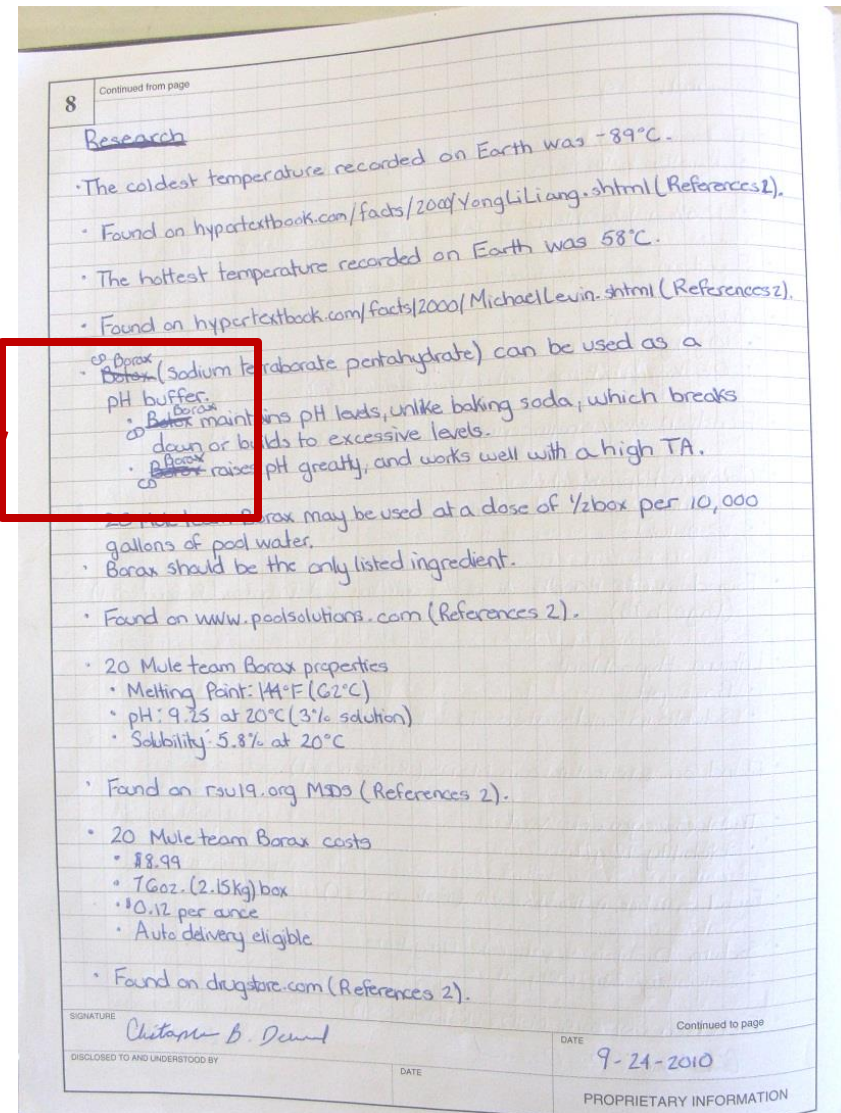 8 Continued from page
Research
· The coldest temperature recorded on Earth was -89°C.
· Found on hypertextbook.com/facts/2000/YongLiLiang.shtml (References 2).
· The hottest temperature recorded on Earth was 58°C.
· Found on hypertextbook.com/facts/2000/MichaelLevin.shtml (References 2).
CD Borax
· Botox (sodium tetraborate pentahydrate) can be used as a
pH buffer.
Borax
· Botox maintains pH levels, unlike baking soda, which breaks
CD down or builds to excessive levels.
Borax
· Botox raises pH greatly, and works well with a high TA.
CD
20 Mule team Borax may be used at a dose of 1/2 box per 10,000
gallons of pool water.
· Borax should be the only listed ingredient.
· Found on www.poolsolutions.com (References 2).
· 20 Mule team Borax properties
· Melting Point: 144°F (62°C)
· pH: 9.25 at 20°C (3% solution)
· Solubility: 5.8% at 20°C
· Found on rsu19.org MSDS (References 2).
· 20 Mule team Borax costs
· $8.99
· 76oz. (2.15kg) box
· $0.12 per ounce
· Auto delivery eligible
· Found on drugstore.com (References 2).
SIGNATURE
B.
Continued to page
DATE
9-24-2010
DISCLOSED TO AND UNDERSTOOD BY
DATE
PROPRIETARY INFORMATION